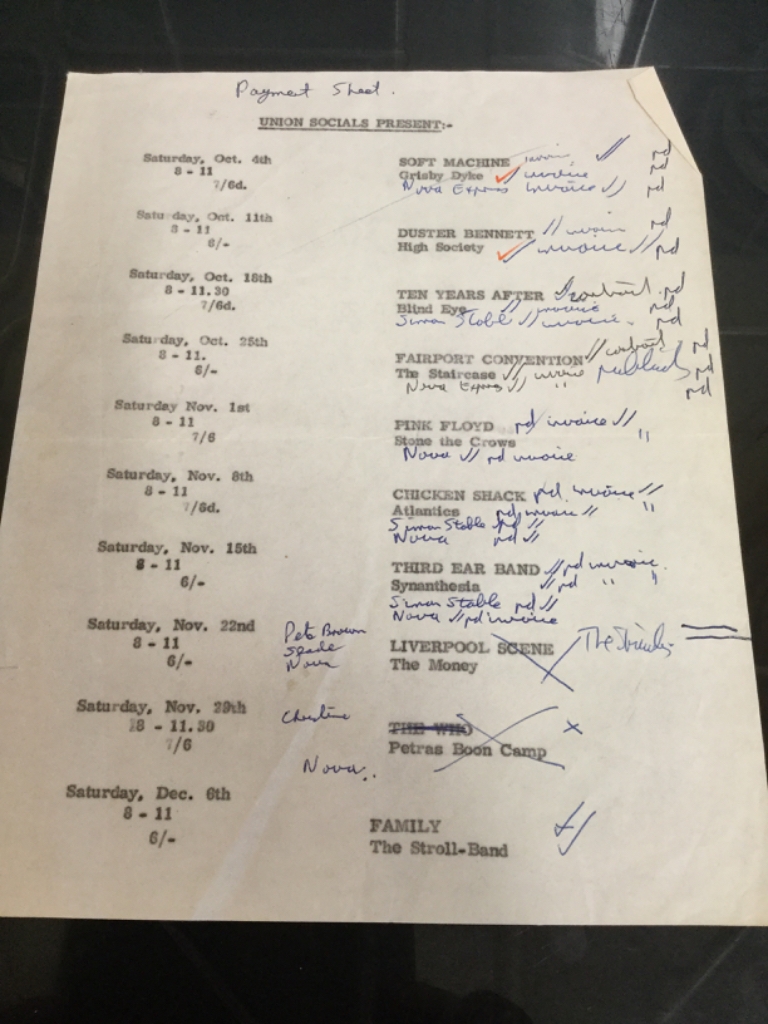 Payment Sheet.
UNION SOCIALS PRESENT:-
Saturday, Oct. 4th SOFT MACHINE invoice // pd
8 - 11 Grisby Dyke ✓ invoice pd
7/6d. Nova Express invoice // pd
Saturday, Oct. 11th DUSTER BENNETT // invoice pd
8 - 11 High Society ✓ invoice // pd
6/-
Saturday, Oct. 18th TEN YEARS AFTER // contract. pd
8 - 11.30 Blind Eye // invoice pd
7/6d. Simon Stable // invoice. pd
Saturday, Oct. 25th FAIRPORT CONVENTION // contract pd
8 - 11. The Staircase // invoice pd
6/- Nova Express // " pd
Saturday Nov. 1st PINK FLOYD pd/ invoice //
8 - 11 Stone the Crows "
7/6 Nova // pd invoice
Saturday, Nov. 8th CHICKEN SHACK pd. invoice //
8 - 11 Atlantics pd invoice // "
7/6d. Simon Stable pd //
Nova pd //
Saturday, Nov. 15th THIRD EAR BAND // pd invoice.
8 - 11 Synanthesia // pd " "
6/- Simon Stable pd //
Nova // pd invoice
Saturday, Nov. 22nd Pete Brown LIVERPOOL SCENE The
8 - 11 The Money
6/- Nova
Saturday, Nov. 29th Christine THE WHO x
8 - 11.30 Petras Boon Camp
7/6 Nova..
Saturday, Dec. 6th
8 - 11 FAMILY
6/- The Stroll-Band